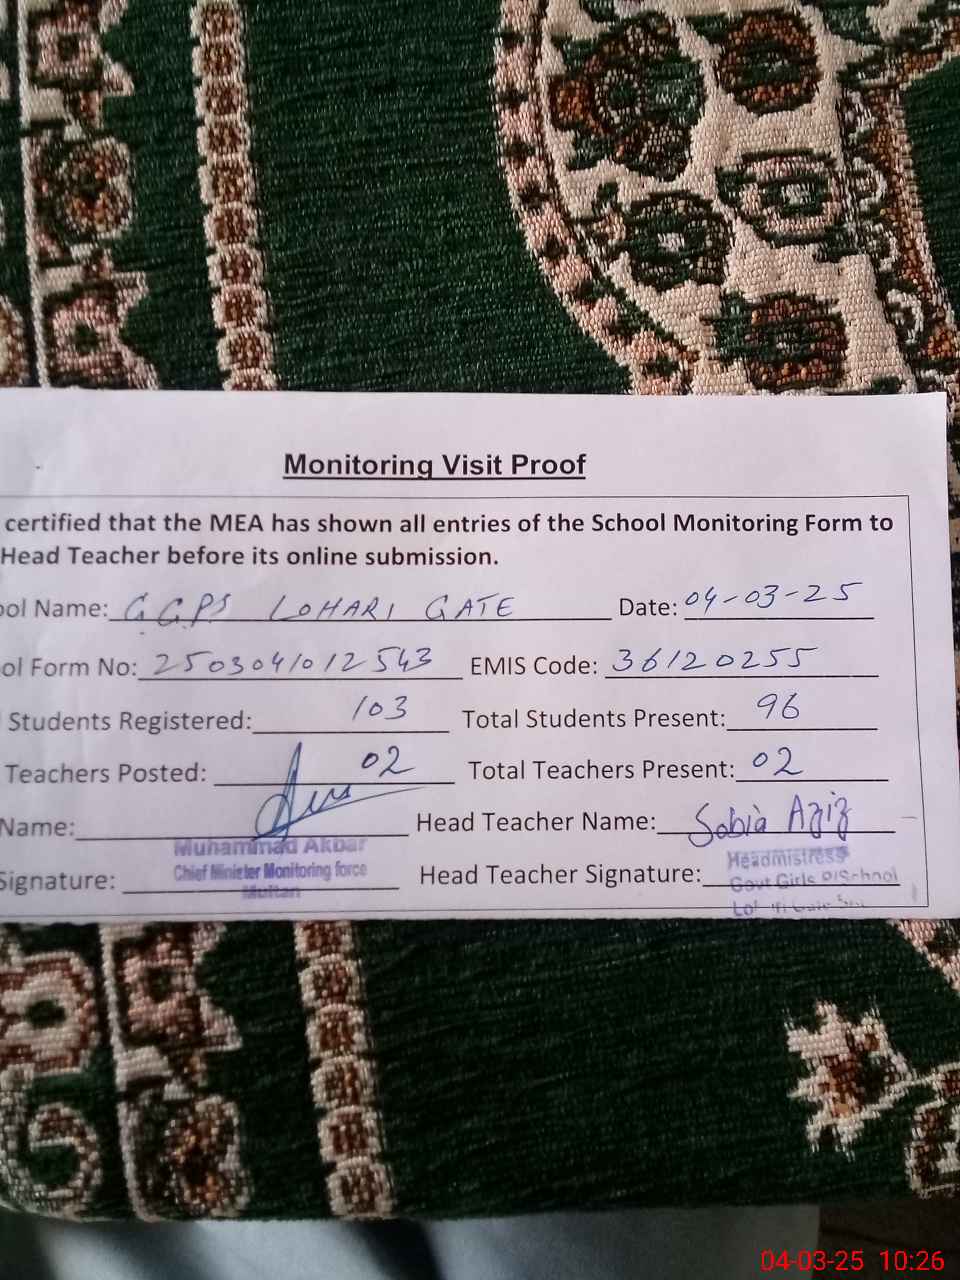 Monitoring Visit Proof
certified that the MEA has shown all entries of the School Monitoring Form to
Head Teacher before its online submission.
ool Name: GGPS LOHARI GATE Date: 04-03-25
ol Form No: 2503041012543 EMIS Code: 36120255
Students Registered: 103 Total Students Present: 96
Teachers Posted: 02 Total Teachers Present: 02
Name: Head Teacher Name: Sabia Aziz
Muhammad Akbar Headmistress
Signature: Chief Minister Monitoring force Head Teacher Signature: Govt Girls
Multan
04-03-25 10:26